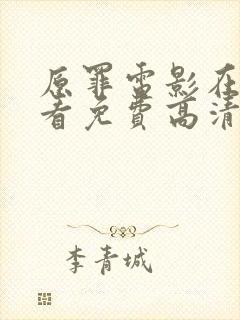 原罪雷影在
看免费高清
李青城